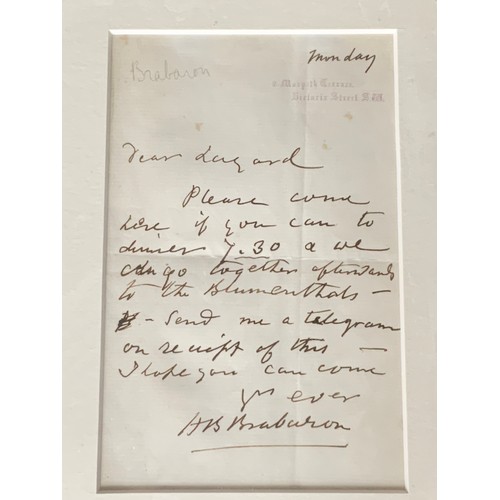 Brabaron
Monday
Victoria Street S.W.
Dear
Please come
here if you can to
dinner 7.30 & we
can go together afterwards
to the Blumenthals –
– Send me a telegram
on receipt of this –
I hope you can come
Yrs ever
HB Brabaron